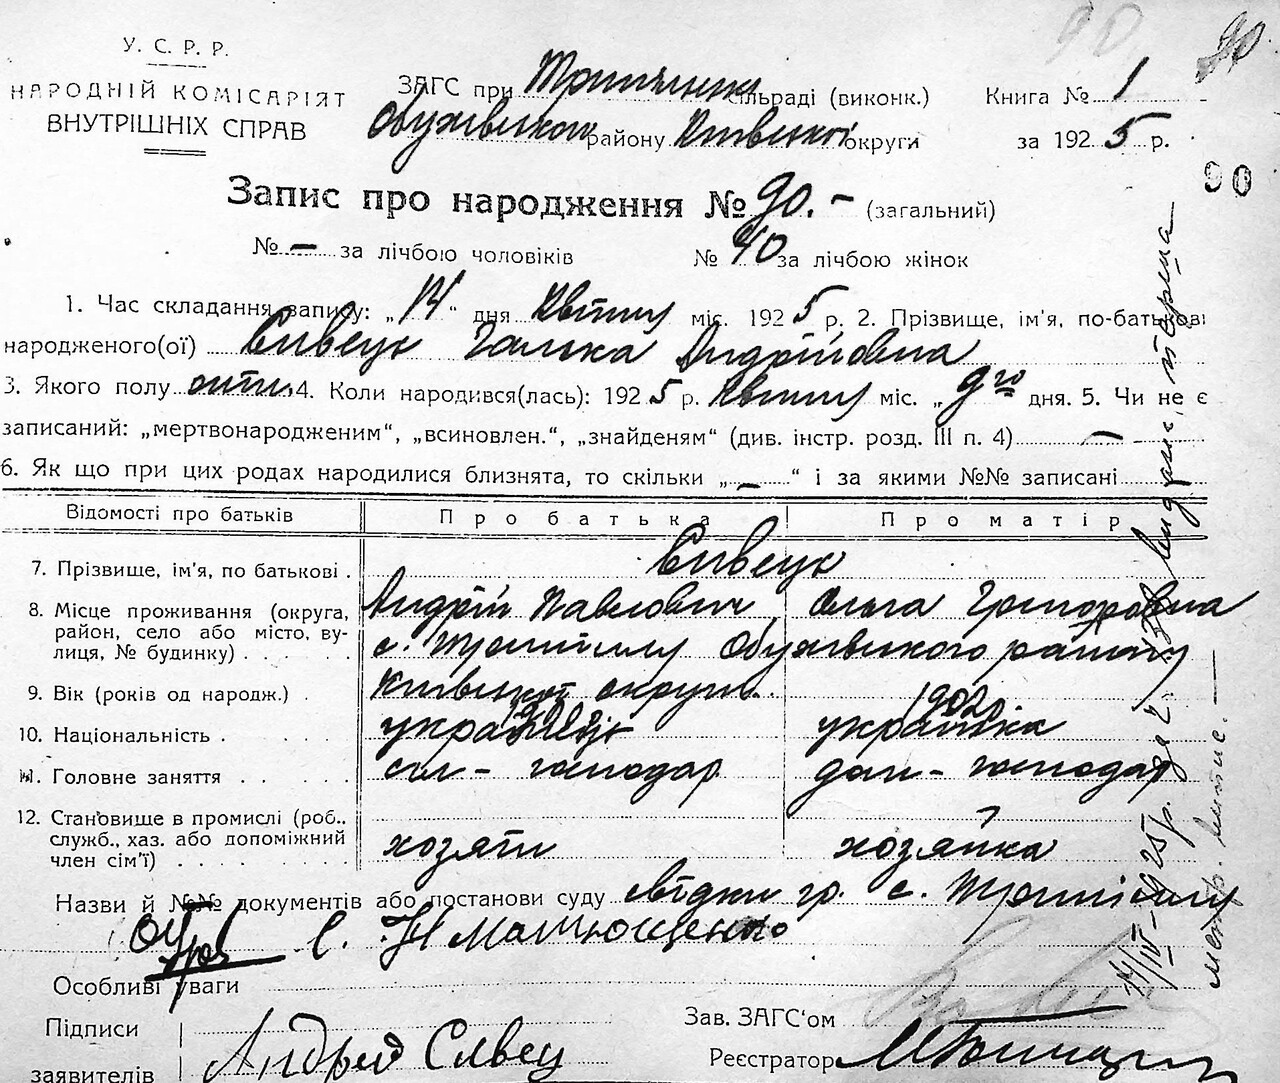 90
90
У. С. Р. Р.
НАРОДНІЙ КОМІСАРІЯТ
ВНУТРІШНІХ СПРАВ
ЗАГС при сільраді (виконк.)
району округи
Книга № 1
за 1925 р.
90
Запис про народження № 90.- (загальний)
№ — за лічбою чоловіків № 40 за лічбою жінок
1. Час складання запису: „14“ дня Квітня міс. 1925 р. 2. Прізвище, ім'я, по-батькові
народженого(ої) Сивець Галька Андріївна
3. Якого полу 4. Коли народився(лась): 1925 р. Квітня міс. „9го дня. 5. Чи не є
записаний: „мертвонародженим“, „всиновлен.“, „знайденям“ (див. інстр. розд. III п. 4) —
6. Як що при цих родах народилися близнята, то скільки „—“ і за якими №№ записані
Відомості про батьків Про батька Про матір
7. Прізвище, ім'я, по батькові . Сивець
8. Місце проживання (округа, район, село або місто, вулиця, № будинку) . . . . .
Андрій Павлович Ольга Григоровна
с. Трипілля Обухівського району
9. Вік (років од народж.) . Київської округи 1902
10. Національність . українець українка
11. Головне заняття . . . . . сіл-господар дом-господар
12. Становище в промислі (роб., служб., хаз. або допоміжний член сім'ї) . . . . . хозяїн хозяйка
Назви й №№ документів або постанови суду свідки гр. с. Трипілля
С. Н Матющенко
Особливі уваги
Підписи
заявителів Андрей Сивец
Зав. ЗАГС'ом
Реєстратор
14/IV-1925 р. за №